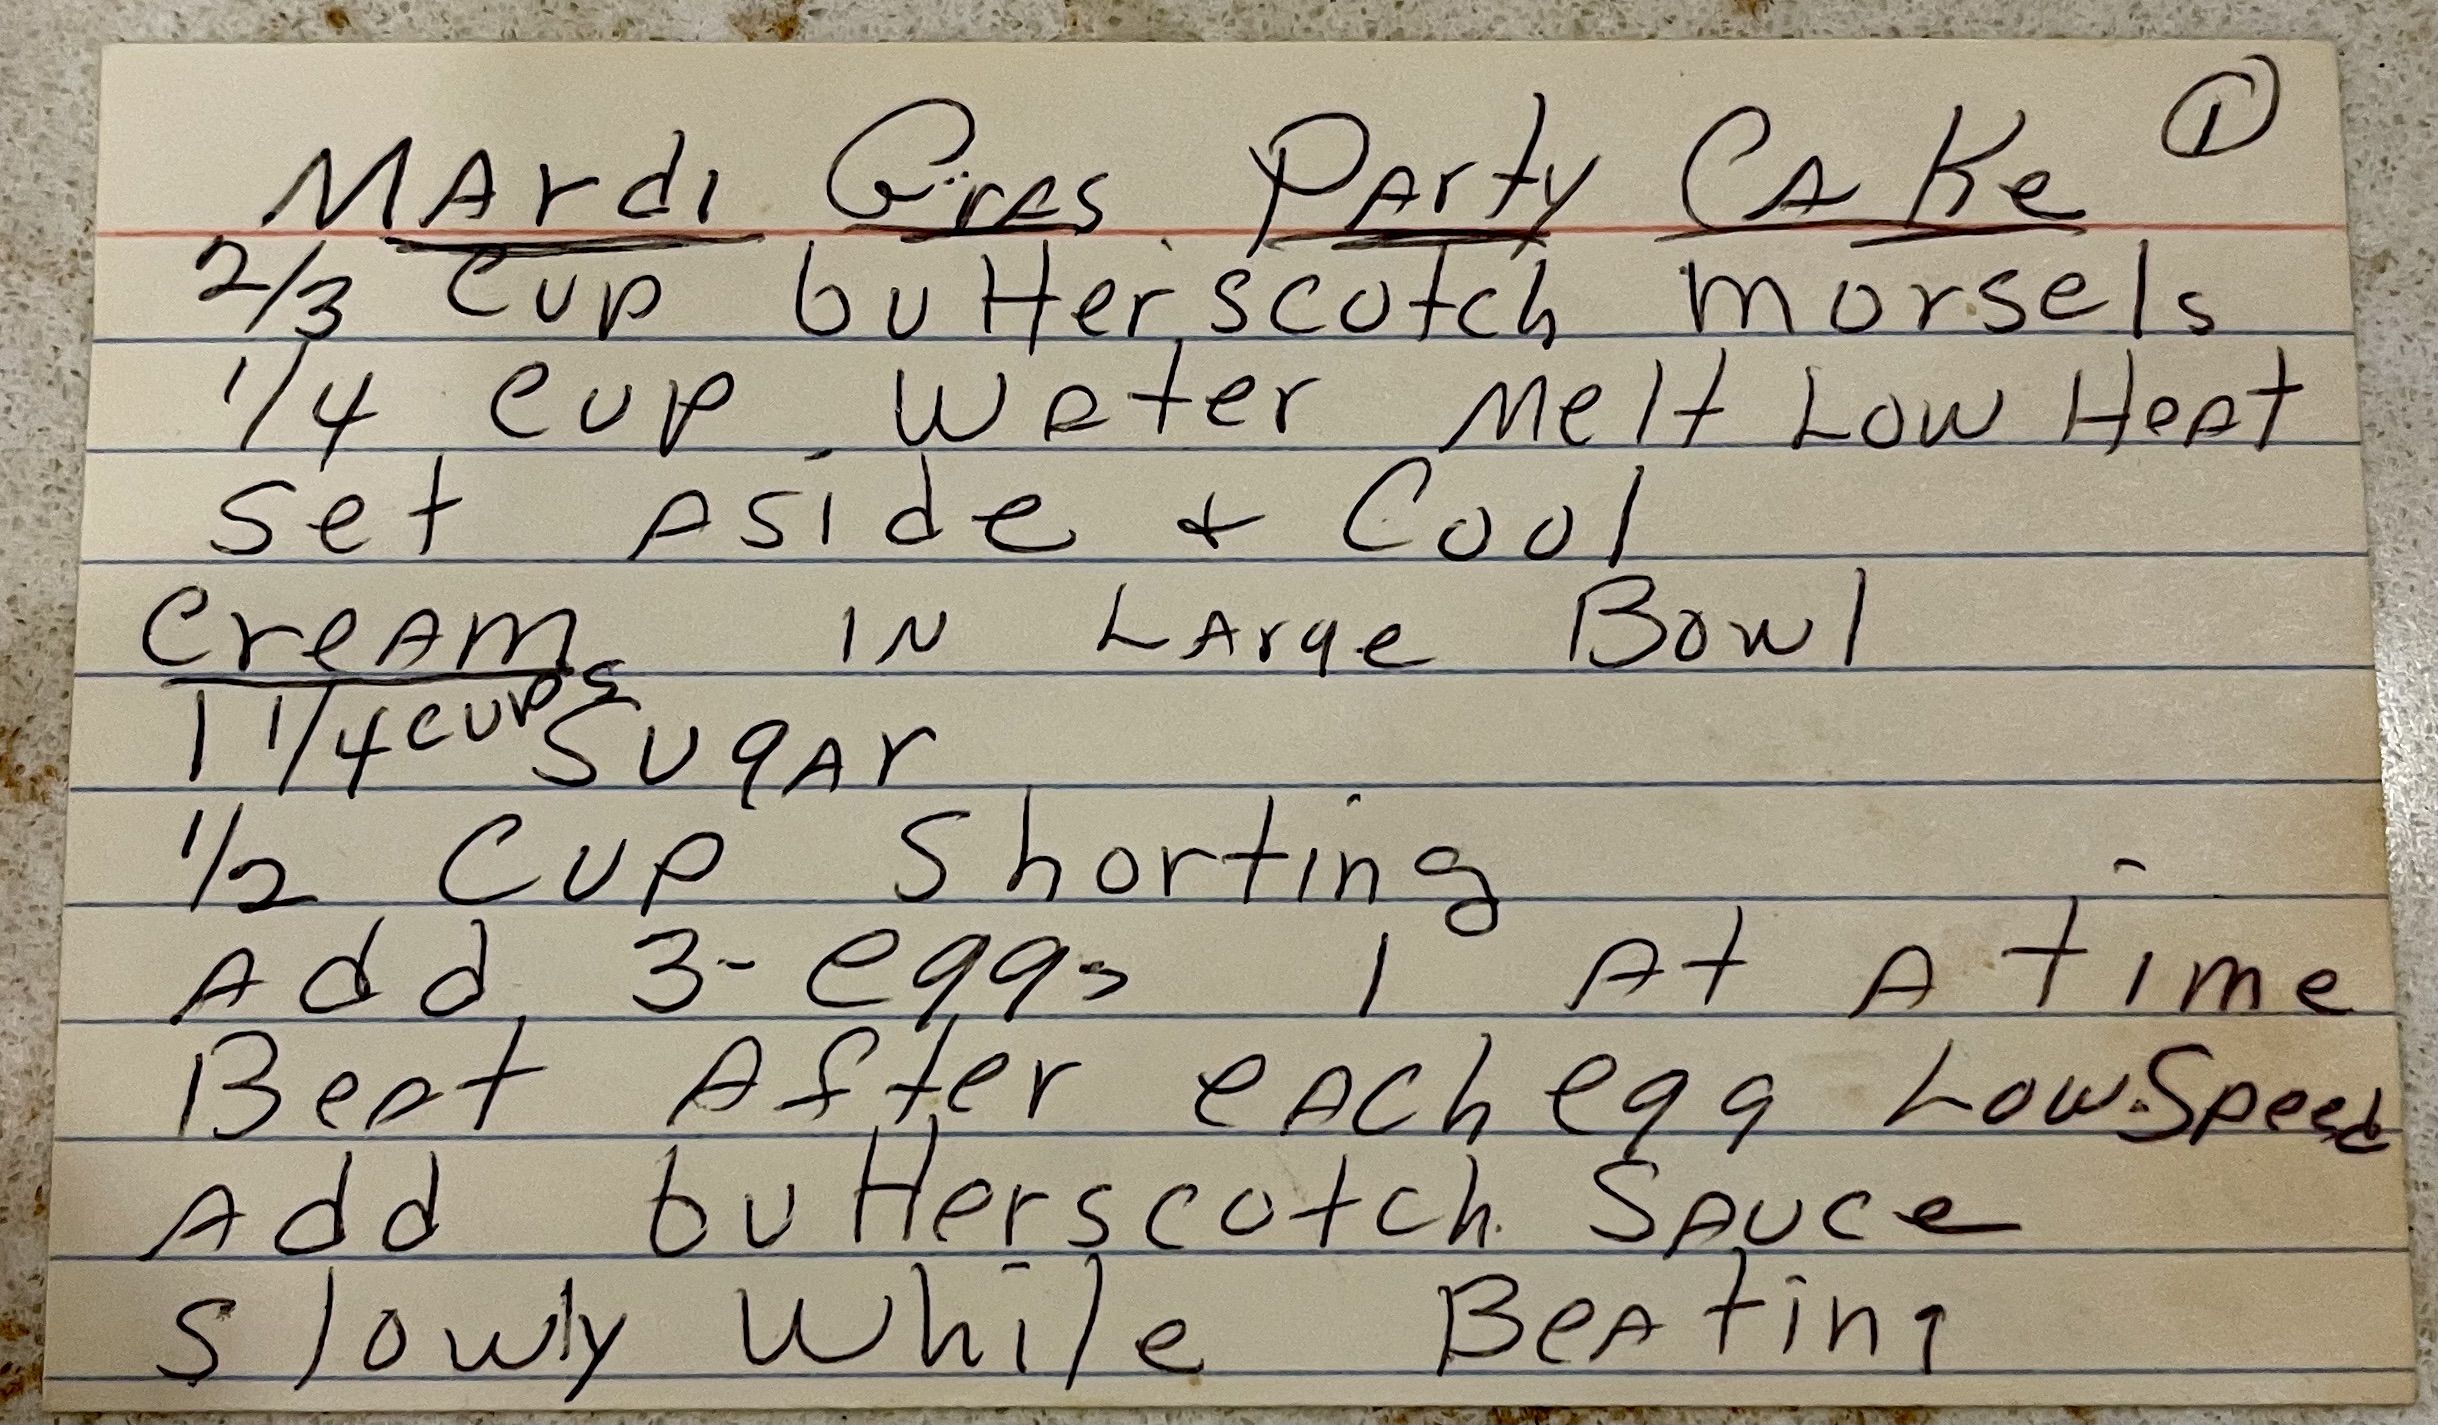 Mardi Gras Party Cake ①
2/3 Cup butterscotch morsels
1/4 cup Water Melt Low Heat
Set Aside & Cool
Cream IN Large Bowl
1 1/4 cups Sugar
1/2 Cup Shorting
Add 3-eggs 1 At A time
Beat After each egg Low Speed
Add butterscotch Sauce
Slowly While Beating